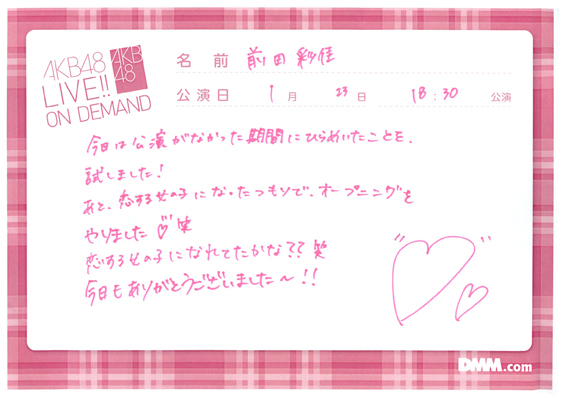 AKB48
LIVE!!
ON DEMAND
AKB
48
名前 前田彩佳
公演日 1月 23日 18:30 公演
今日は公演がなかった期間にひらめいたことを、
試しました!
あと、恋する女の子になったつもりで、オープニングを
やりました♡笑
恋する女の子になれてたかな?? 笑
今日もありがとうございました〜!!
DMM.com